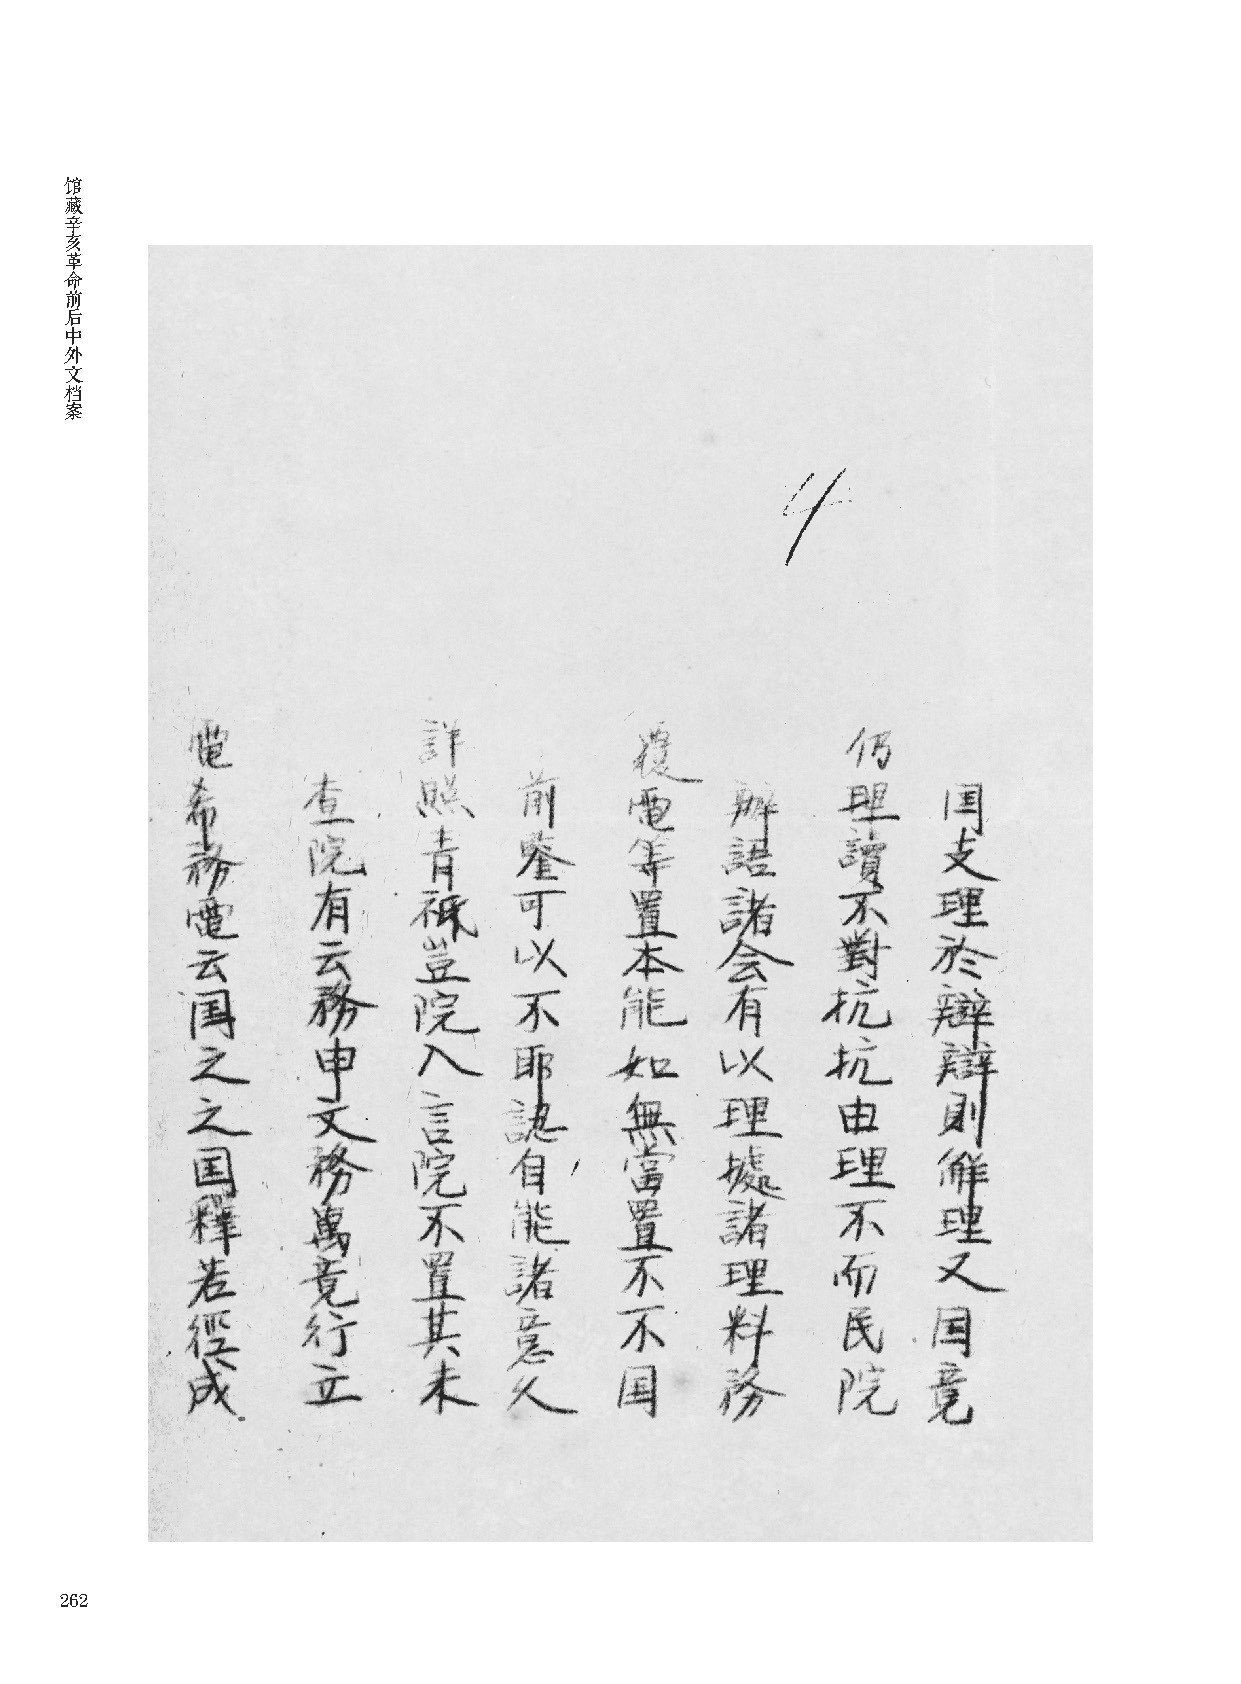 馆藏辛亥革命前后中外文档案
4
国支理於辯辯則解理又国竟
仍理讀不對抗抗由理不而民院
辦語諸会有以理據諸理料務
覆電等置本能如無當置不不国
前鑒可以不耶認自能諸意久
詳照青祇豈院入言院不置其未
查院有云務申文務萬竟行立
電希務電云国之之国釋若徑成
262